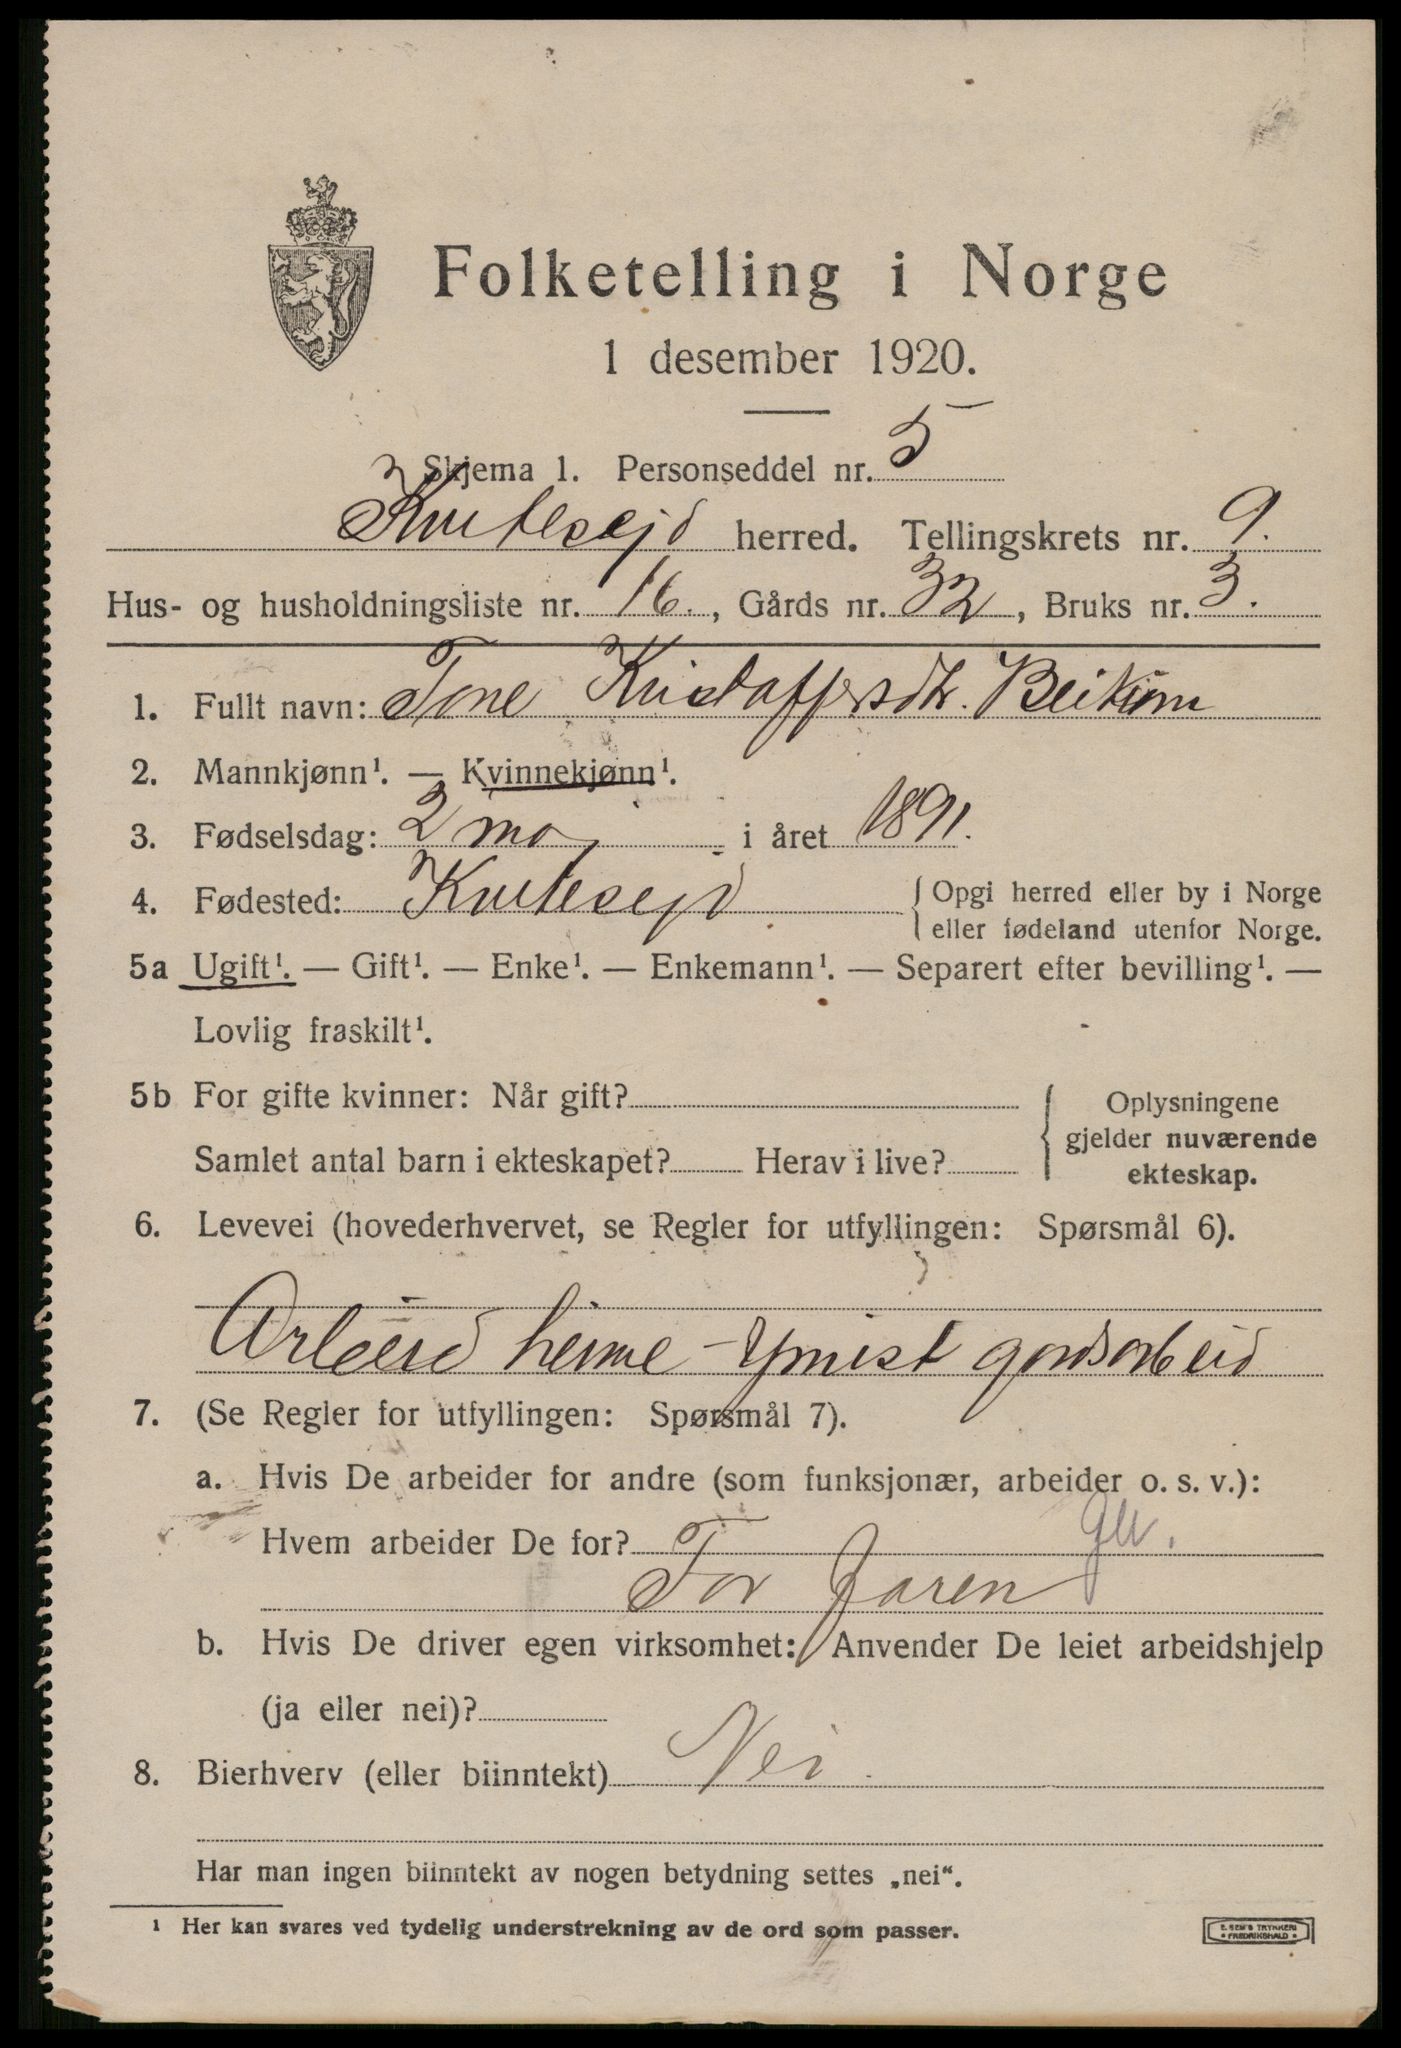 Folketelling i Norge
1 desember 1920.
Skjema 1. Personseddel nr. 5
Kvitesejd herred. Tellingskrets nr. 9.
Hus- og husholdningsliste nr. 16., Gårds nr. 32, Bruks nr. 3.
1. Fullt navn: Tone Kristaffersdtr.
2. Mannkjønn¹. — Kvinnekjønn¹.
3. Fødselsdag: 2 mai i året 1891.
4. Fødested: Kvitesejd { Opgi herred eller by i Norge
eller fødeland utenfor Norge.
5a Ugift¹. — Gift¹. — Enke¹. — Enkemann¹. — Separert efter bevilling¹. —
Lovlig fraskilt¹.
5b For gifte kvinner: Når gift?
Samlet antal barn i ekteskapet? Herav i live?
{ Oplysningene
gjelder nuværende
ekteskap.
6. Levevei (hovederhvervet, se Regler for utfyllingen: Spørsmål 6).
Arbeid heime ymist gardsarbeid
7. (Se Regler for utfyllingen: Spørsmål 7).
a. Hvis De arbeider for andre (som funksjonær, arbeider o. s. v.):
Hvem arbeider De for?
For Faren
b. Hvis De driver egen virksomhet: Anvender De leiet arbeidshjelp
(ja eller nei)?
8. Bierhverv (eller biinntekt) Nei.
Har man ingen biinntekt av nogen betydning settes „nei“.
¹ Her kan svares ved tydelig understrekning av de ord som passer.
E. SEM'S TRYKKERI
• FREDRIKSHALD •